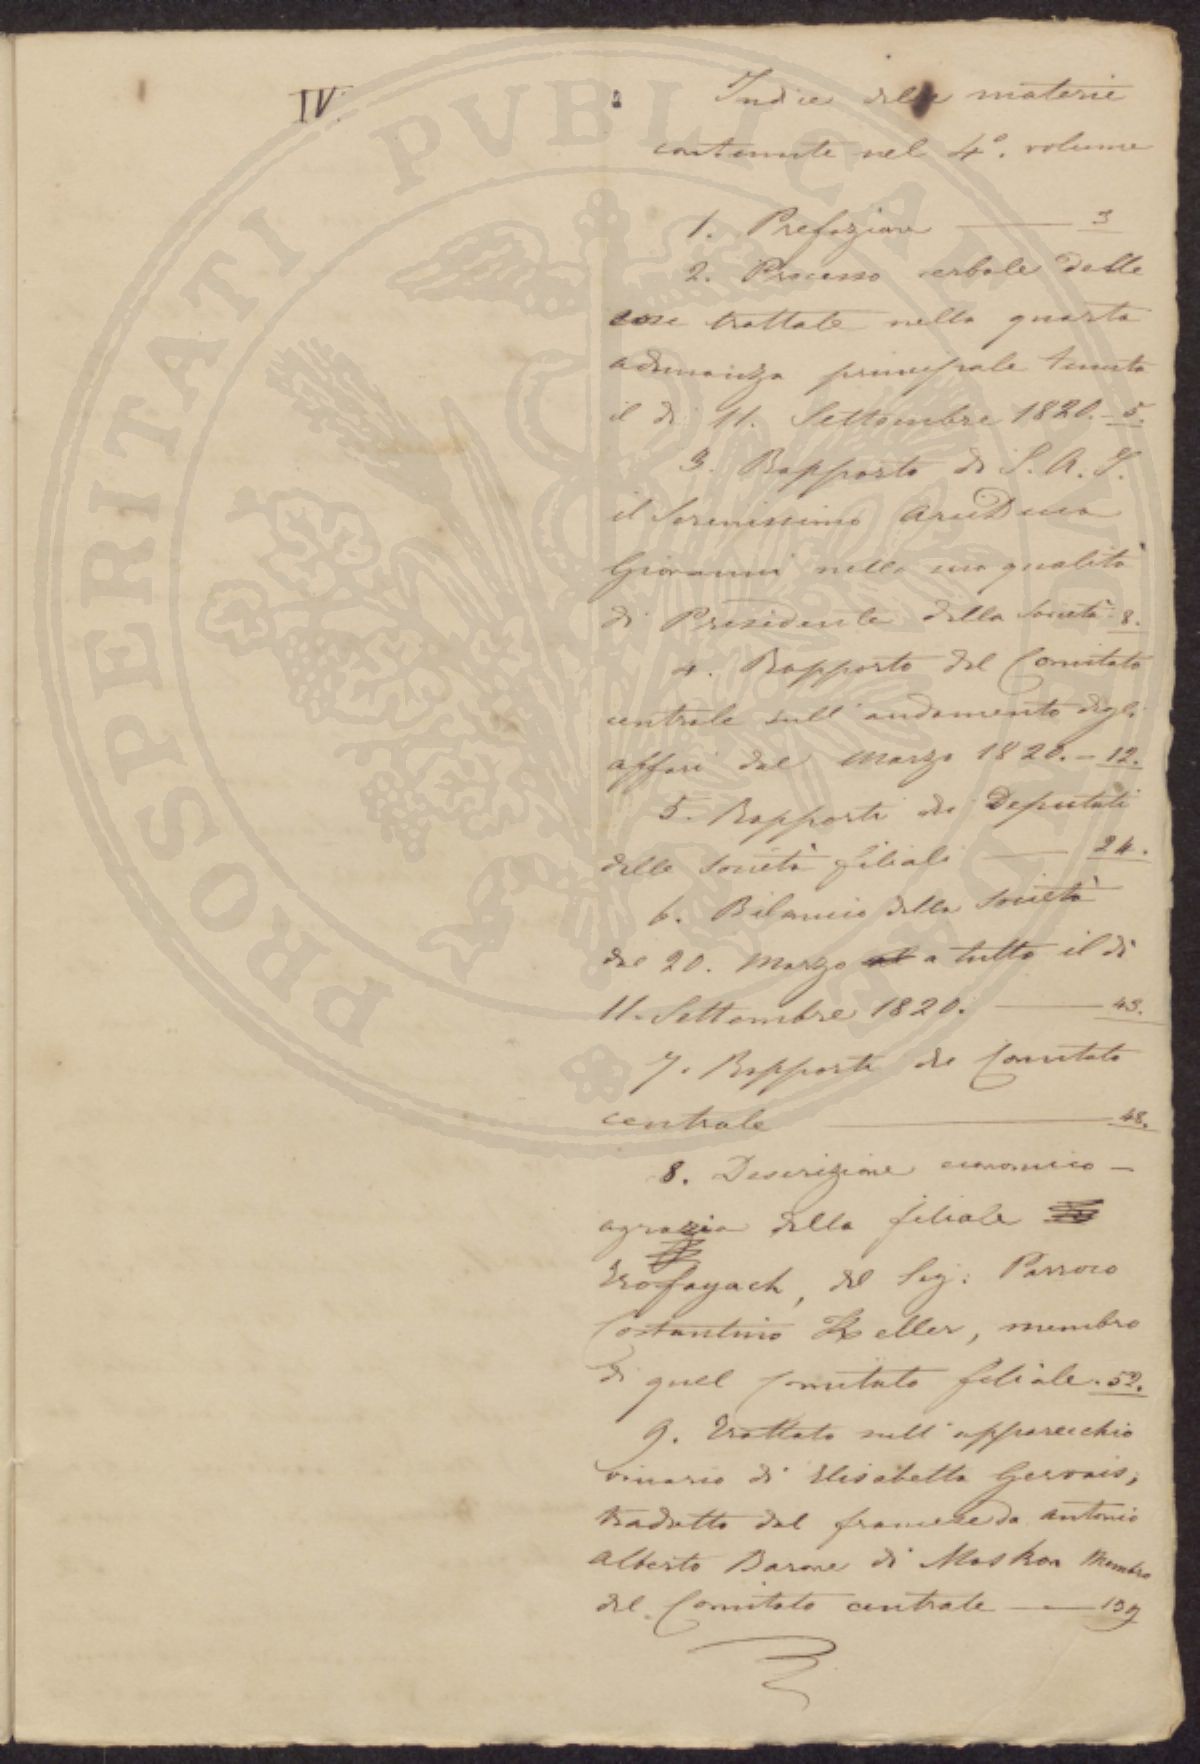 IV.
Indice delle materie
contenute nel 4°. volume
1. Prefazione —— 3
2. Processo verbale delle
cose trattate nella quarta
adunanza principale tenuta
il dì 11. Settembre 1820. - 5.
3. Rapporto di S. A. I.
il Serenissimo ArciDuca
Giovanni nella sua qualità
di Presidente della società - 8.
4. Rapporto del Comitato
centrale sull'andamento degli
affari dal Marzo 1820. - 12.
5. Rapporti dei Deputati
delle società filiali —— 24.
6. Bilancio della società
dal 20. Marzo al a tutto il dì
11. Settembre 1820. —— 43.
7. Rapporti del Comitato
centrale —— 48.
8. Descrizione economico -
agraria della filiale
Trofayach, del Sig: Parroco
Costantino Keller, membro
di quel Comitato filiale. 52.
9. Trattato sull'apparecchio
vinario di Elisabetta Gervais,
tradotto dal francese da Antonio
Alberto Barone di Maskon Membro
del Comitato centrale —— 139
PROSPERITATI PVBLICAE AVGENDAE